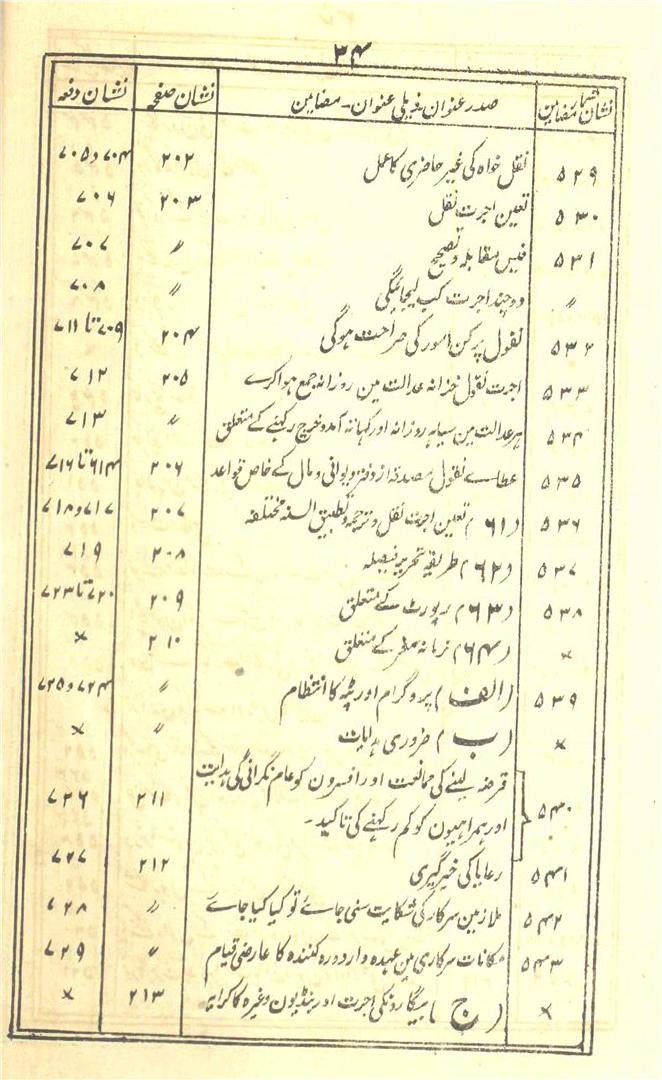 ۳۴
نشان شمار مضامین | صدر عنوان۔ ذیلی عنوان۔ مضامین | نشان صفحہ | نشان دفعہ
۵۲۹ | نقل خواہ کی غیر حاضری کا عمل | ۲۰۲ | ۷۰۴ و ۷۰۵
۵۳۰ | تعین اجرت نقل | ۲۰۳ | ۷۰۶
۵۳۱ | فیس مقابلہ و تصحیح | 〃 | ۷۰۷
〃 | دو چند اجرت کب لیجائیگی | 〃 | ۷۰۸
۵۳۲ | نقول پر کن امور کی صراحت ہوگی | ۲۰۴ | ۷۰۹ تا ۷۱۱
۵۳۳ | اجرت نقول خزانہ عدالت مین روزانہ جمع ہوا کرے | ۲۰۵ | ۷۱۲
۵۳۴ | ہر عدالت مین سیاہہ روزانہ اور کہاتہ آمد و خرچ رکہنے کے متعلق | 〃 | ۷۱۳
۵۳۵ | عطاے نقول مصدقہ از دفتر دیوانی و مال کے خاص قواعد | ۲۰۶ | ۷۱۴ تا ۷۱۶
۵۳۶ | (۶۱) تعین اجرت نقل و ترجمہ و تطبیق السنہ مختلفہ | ۲۰۷ | ۷۱۷ و ۷۱۸
۵۳۷ | (۶۲) طریقہ تحریر فیصلہ | ۲۰۸ | ۷۱۹
۵۳۸ | (۶۳) رپورٹ کے متعلق | ۲۰۹ | ۷۲۰ تا ۷۲۳
× | (۶۴) زمانہ سفر کے متعلق | ۲۱۰ | ×
۵۳۹ | (الف) پروگرام اور ٹپہ کا انتظام | 〃 | ۷۲۴ و ۷۲۵
× | (ب) ضروری ہدایات | 〃 | ×
۵۴۰ | قرضہ لینے کی ممانعت اور افسرون کو عام نگرانی کی ہدایت
اور ہمراہیون کو کم رکہنے کی تاکید۔ | ۲۱۱ | ۷۲۶
۵۴۱ | رعایا کی خبرگیری | ۲۱۲ | ۷۲۷
۵۴۲ | ملازمین سرکار کی شکایت سنی جاے تو کیا کیا جاے | 〃 | ۷۲۸
۵۴۳ | مکانات سرکاری مین عہدہ دار دورہ کنندہ کا عارضی قیام | 〃 | ۷۲۹
× | (ج) بیگارونکی اجرت اور بنڈیون وغیرہ کا کرایہ | ۲۱۳ | ×